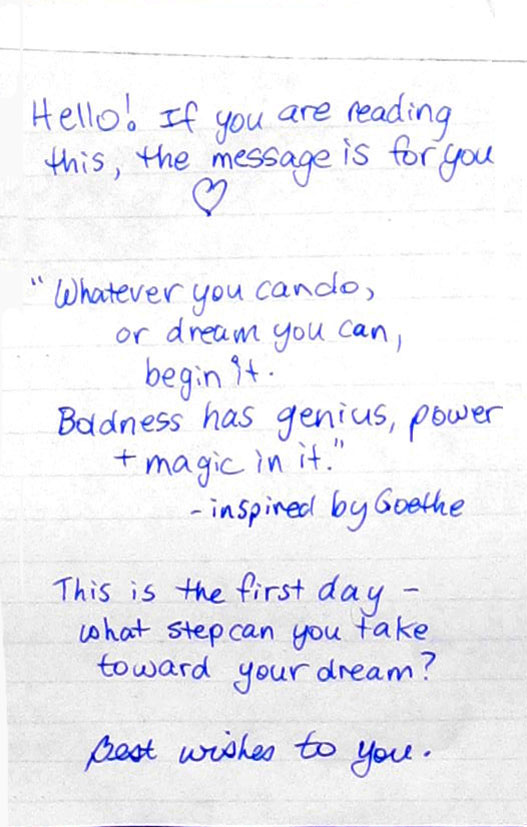 Hello! If you are reading
this, the message is for you
♡
"Whatever you can do,
or dream you can,
begin it.
Boldness has genius, power
+ magic in it."
- inspired by Goethe
This is the first day -
what step can you take
toward your dream?
Best wishes to you.